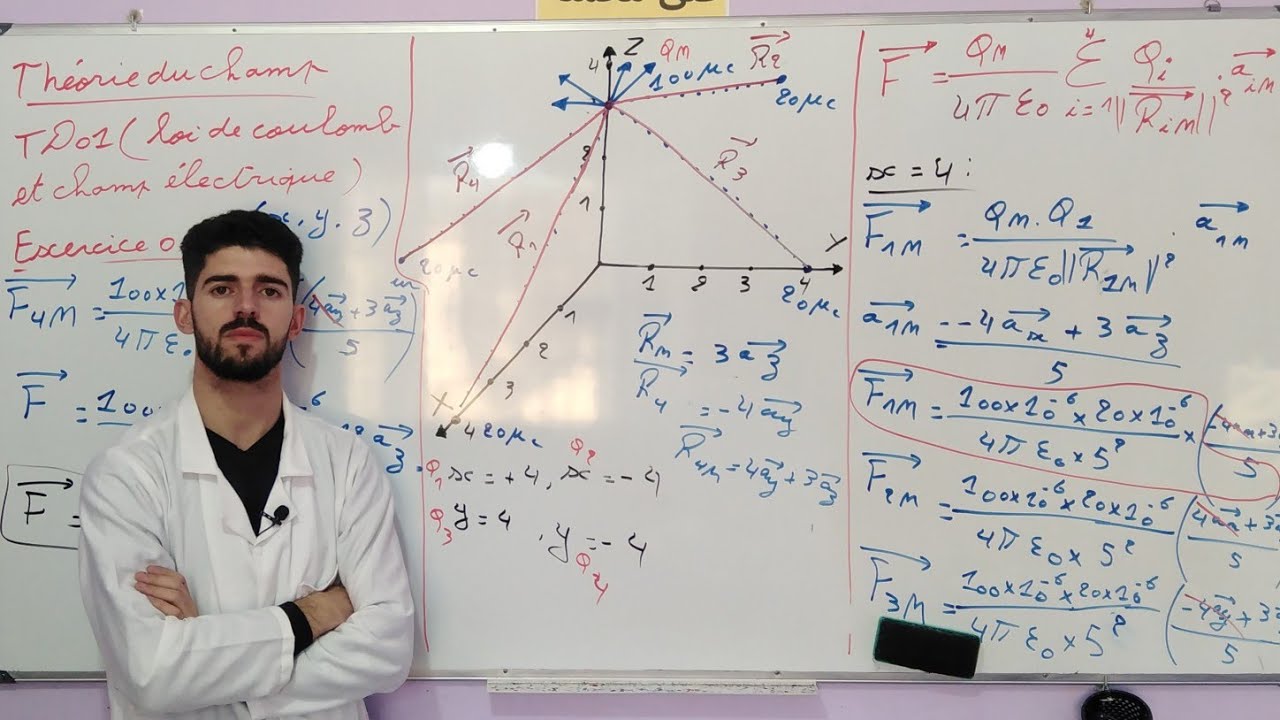 Théorie du champ
TD01 (loi de coulomb
et champ électrique)
Exercice 0
(x, y, z)
F4M = 100x1
4πε0
(4ay + 3az
5
F = 100
-6
az
F =
Z
QM
4
100μc
R2
20μc
R4
R3
2
R1
1
20μc
Y
1 2 3 4
20μc
1
2
3
X
4 20μc
RM = 3az
R4 = -4ay
R4M = 4ay + 3az
Q2
Q1 x = +4, x = -4
Q3 y = 4, y = -4
Q4
F = QM / 4πε0 Σ i=1 4 Qi / ||RiM||² . aiM
x = 4 :
F1M = QM.Q1 / 4πε0||R1M||² . a1M
a1M = -4ax + 3az / 5
F1M = 100x10-6 x 20x10-6 / 4πε0 x 5² x (-4ax + 3 / 5
F2M = 100x10-6 x 20x10-6 / 4πε0 x 5² (4ax + 3 / 5
F3M = 100x10-6 x 20x10-6 / 4πε0 x 5² (-4ay + 3 / 5